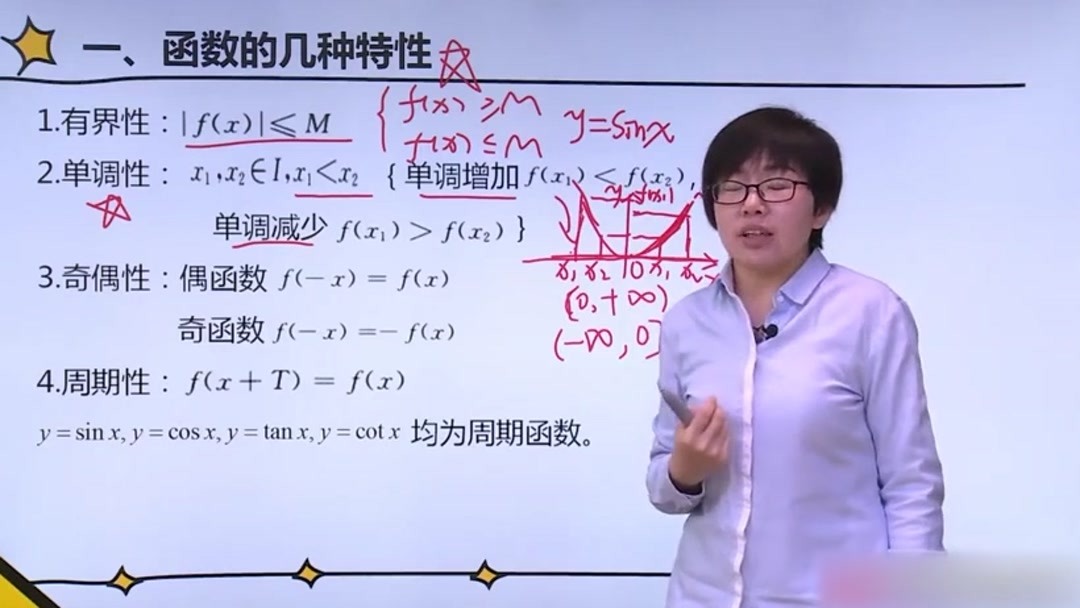 一、函数的几种特性
1.有界性：|f(x)|⩽M { f(x) ≥ M
f(x) ≤ M
y=sinx
2.单调性：x₁,x₂∈I,x₁<x₂ {单调增加 f(x₁)<f(x₂),
单调减少 f(x₁)>f(x₂)}
y
x₁ x₂ 0 x₁ x₂
3.奇偶性：偶函数 f(－x)＝f(x)
(0,+∞)
奇函数 f(－x)＝－f(x)
(-∞,0]
4.周期性：f(x＋T)＝f(x)
y=sin x, y=cos x, y=tan x, y=cot x 均为周期函数。